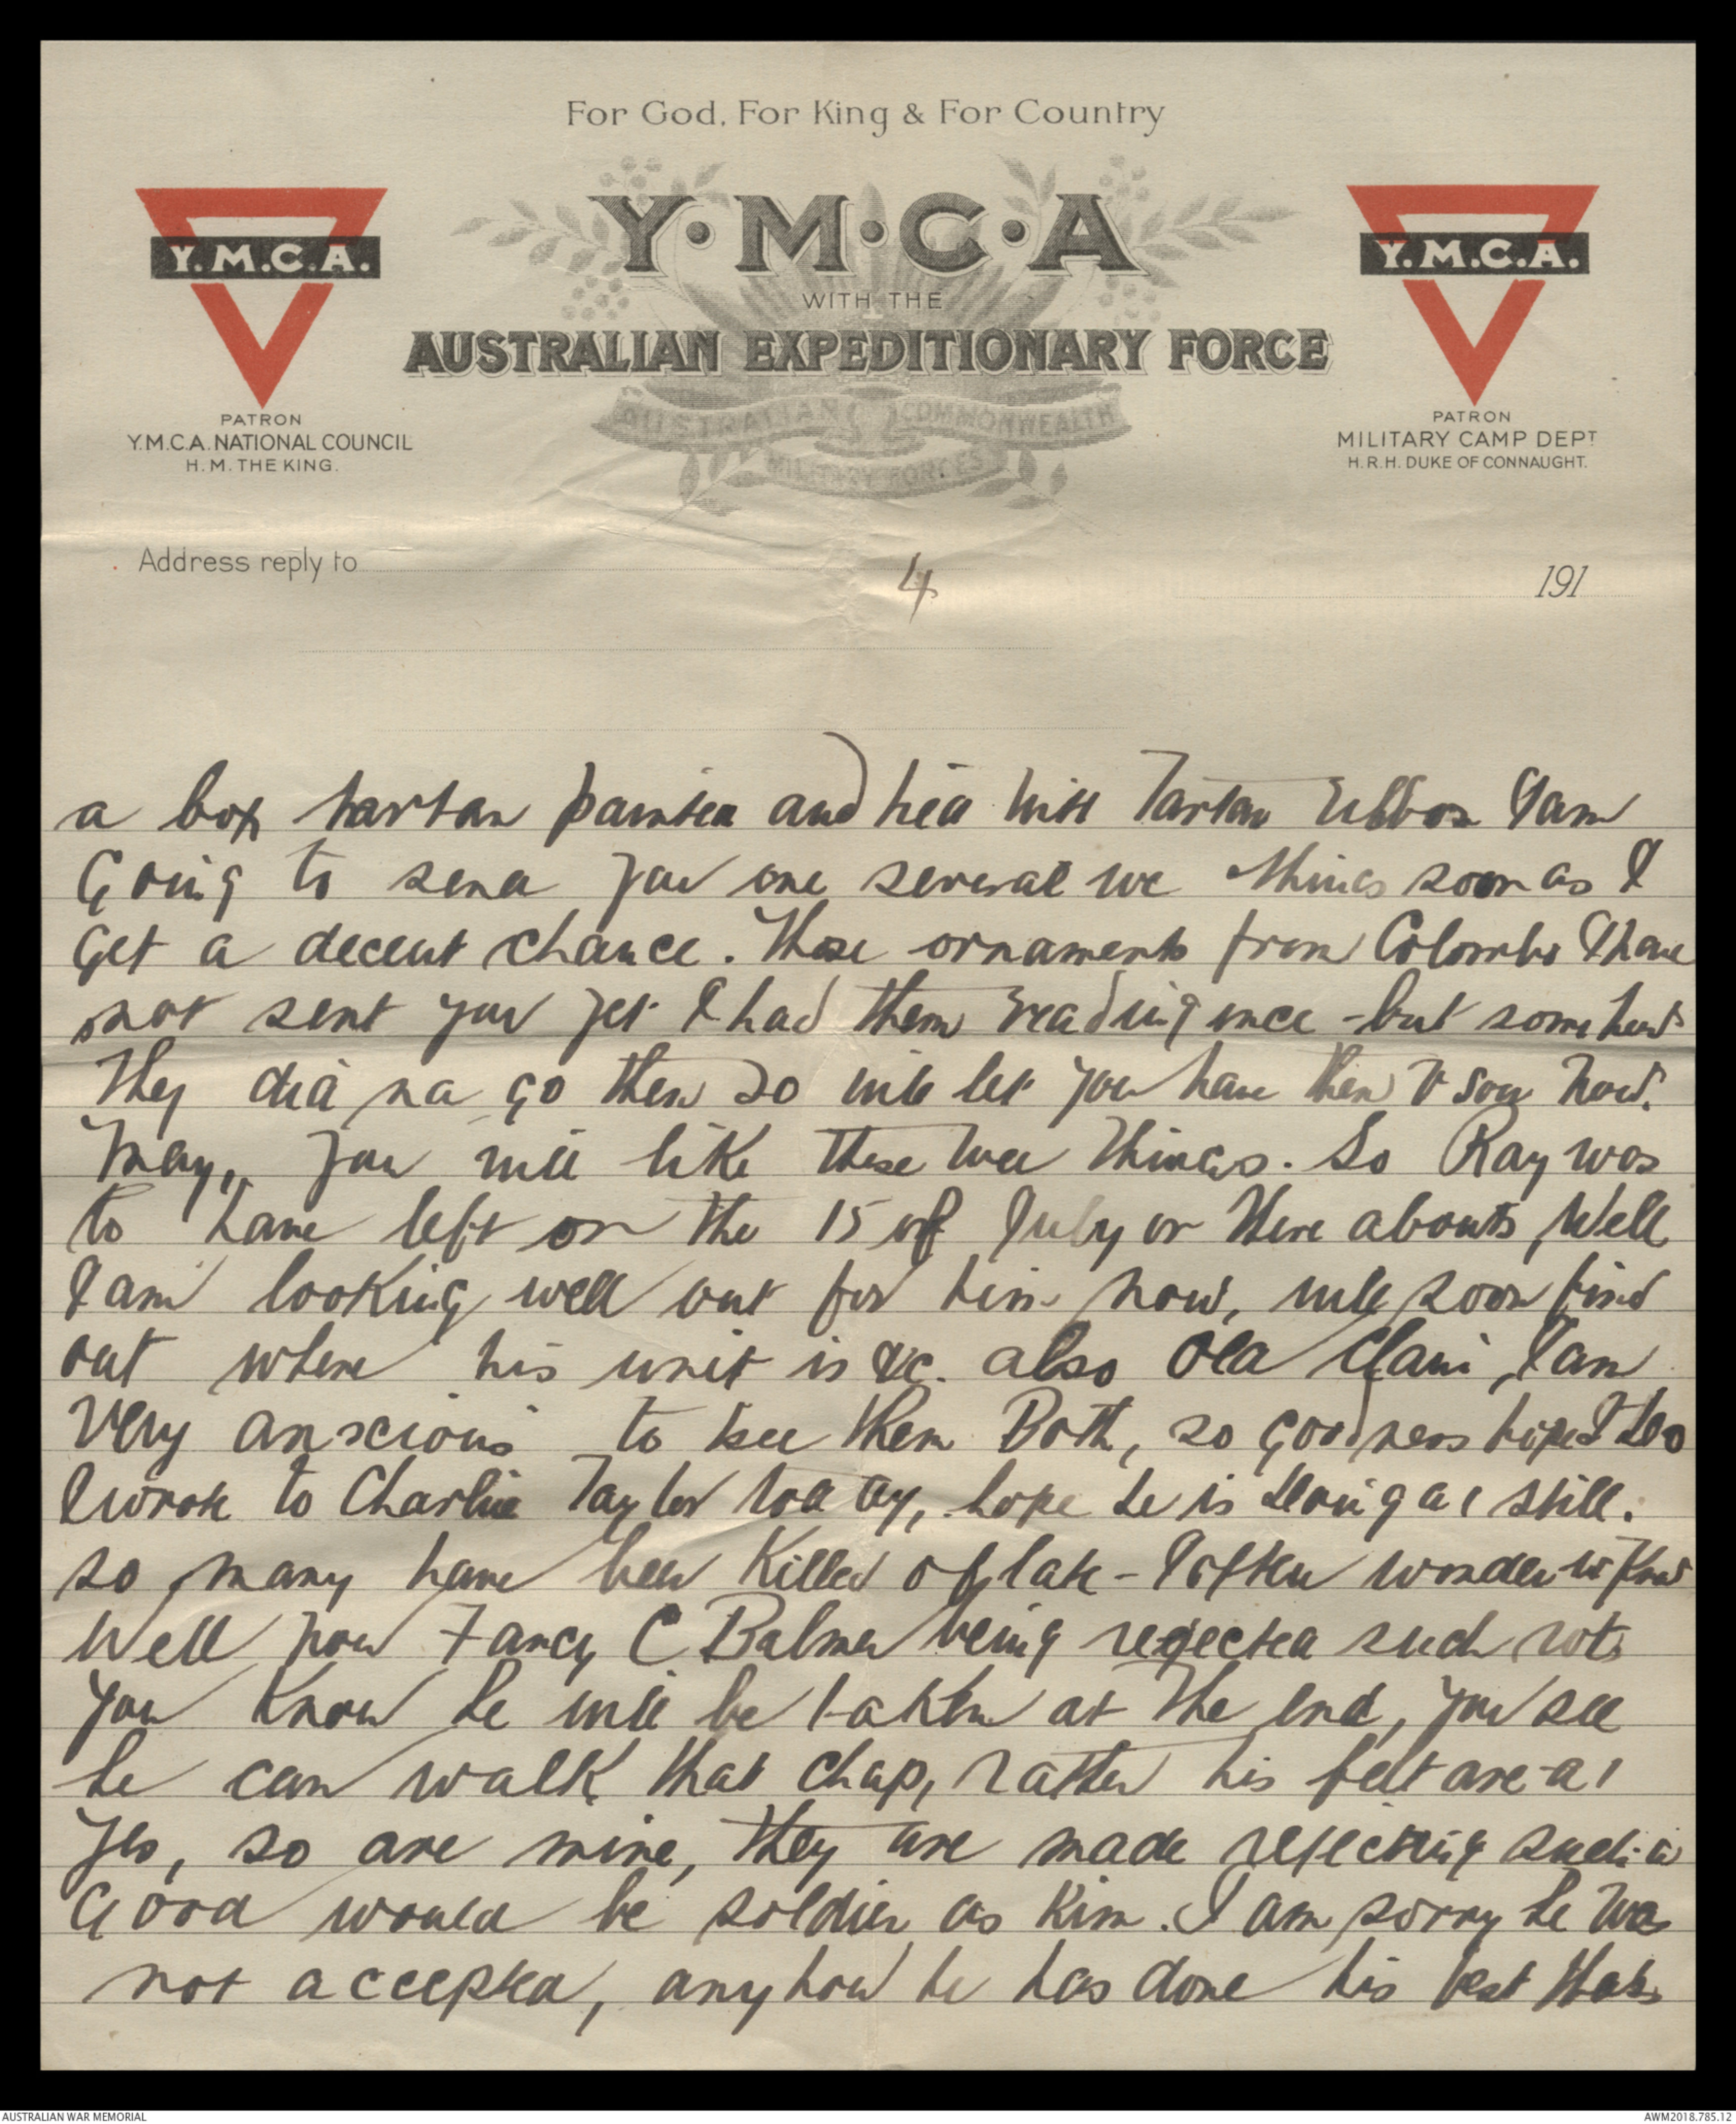 For God, For King & For Country
Y.M.C.A.
Y·M·C·A
Y.M.C.A.
WITH THE
AUSTRALIAN EXPEDITIONARY FORCE
AUSTRALIAN COMMONWEALTH
MILITARY FORCES
PATRON
Y.M.C.A. NATIONAL COUNCIL
H.M. THE KING.
PATRON
MILITARY CAMP DEPT
H.R.H. DUKE OF CONNAUGHT.
Address reply to
4
191
a box tartan painted and tied with Tartan ribbon I am
Going to send you one several we things soon as I
Get a decent chance. Those ornaments from Colombo I have
not sent you yet I had them reading once - but somehow
They did na go then so will let you have them soon now.
May, you will like these wee things. So Ray was
to have left on the 15 of July or there abouts, Well
I am looking well out for him now, will soon find
out where his unit is &c. also Old I am
very anscious to see them Both, so goodness hopes I do
I wrote to Charlie Taylor today, hope he is doing a 1 still.
so many have been Killed of late - I often wonder
Well now Fancy C Balmer being rejected such rots
you know he will be taken at the end, you see
he can walk that chap, rather his feet are a 1
yes, so are mine, they are made rejecting such a
Good would be soldier as him. I am sorry he was
not accepted, anyhow he has done his best thats